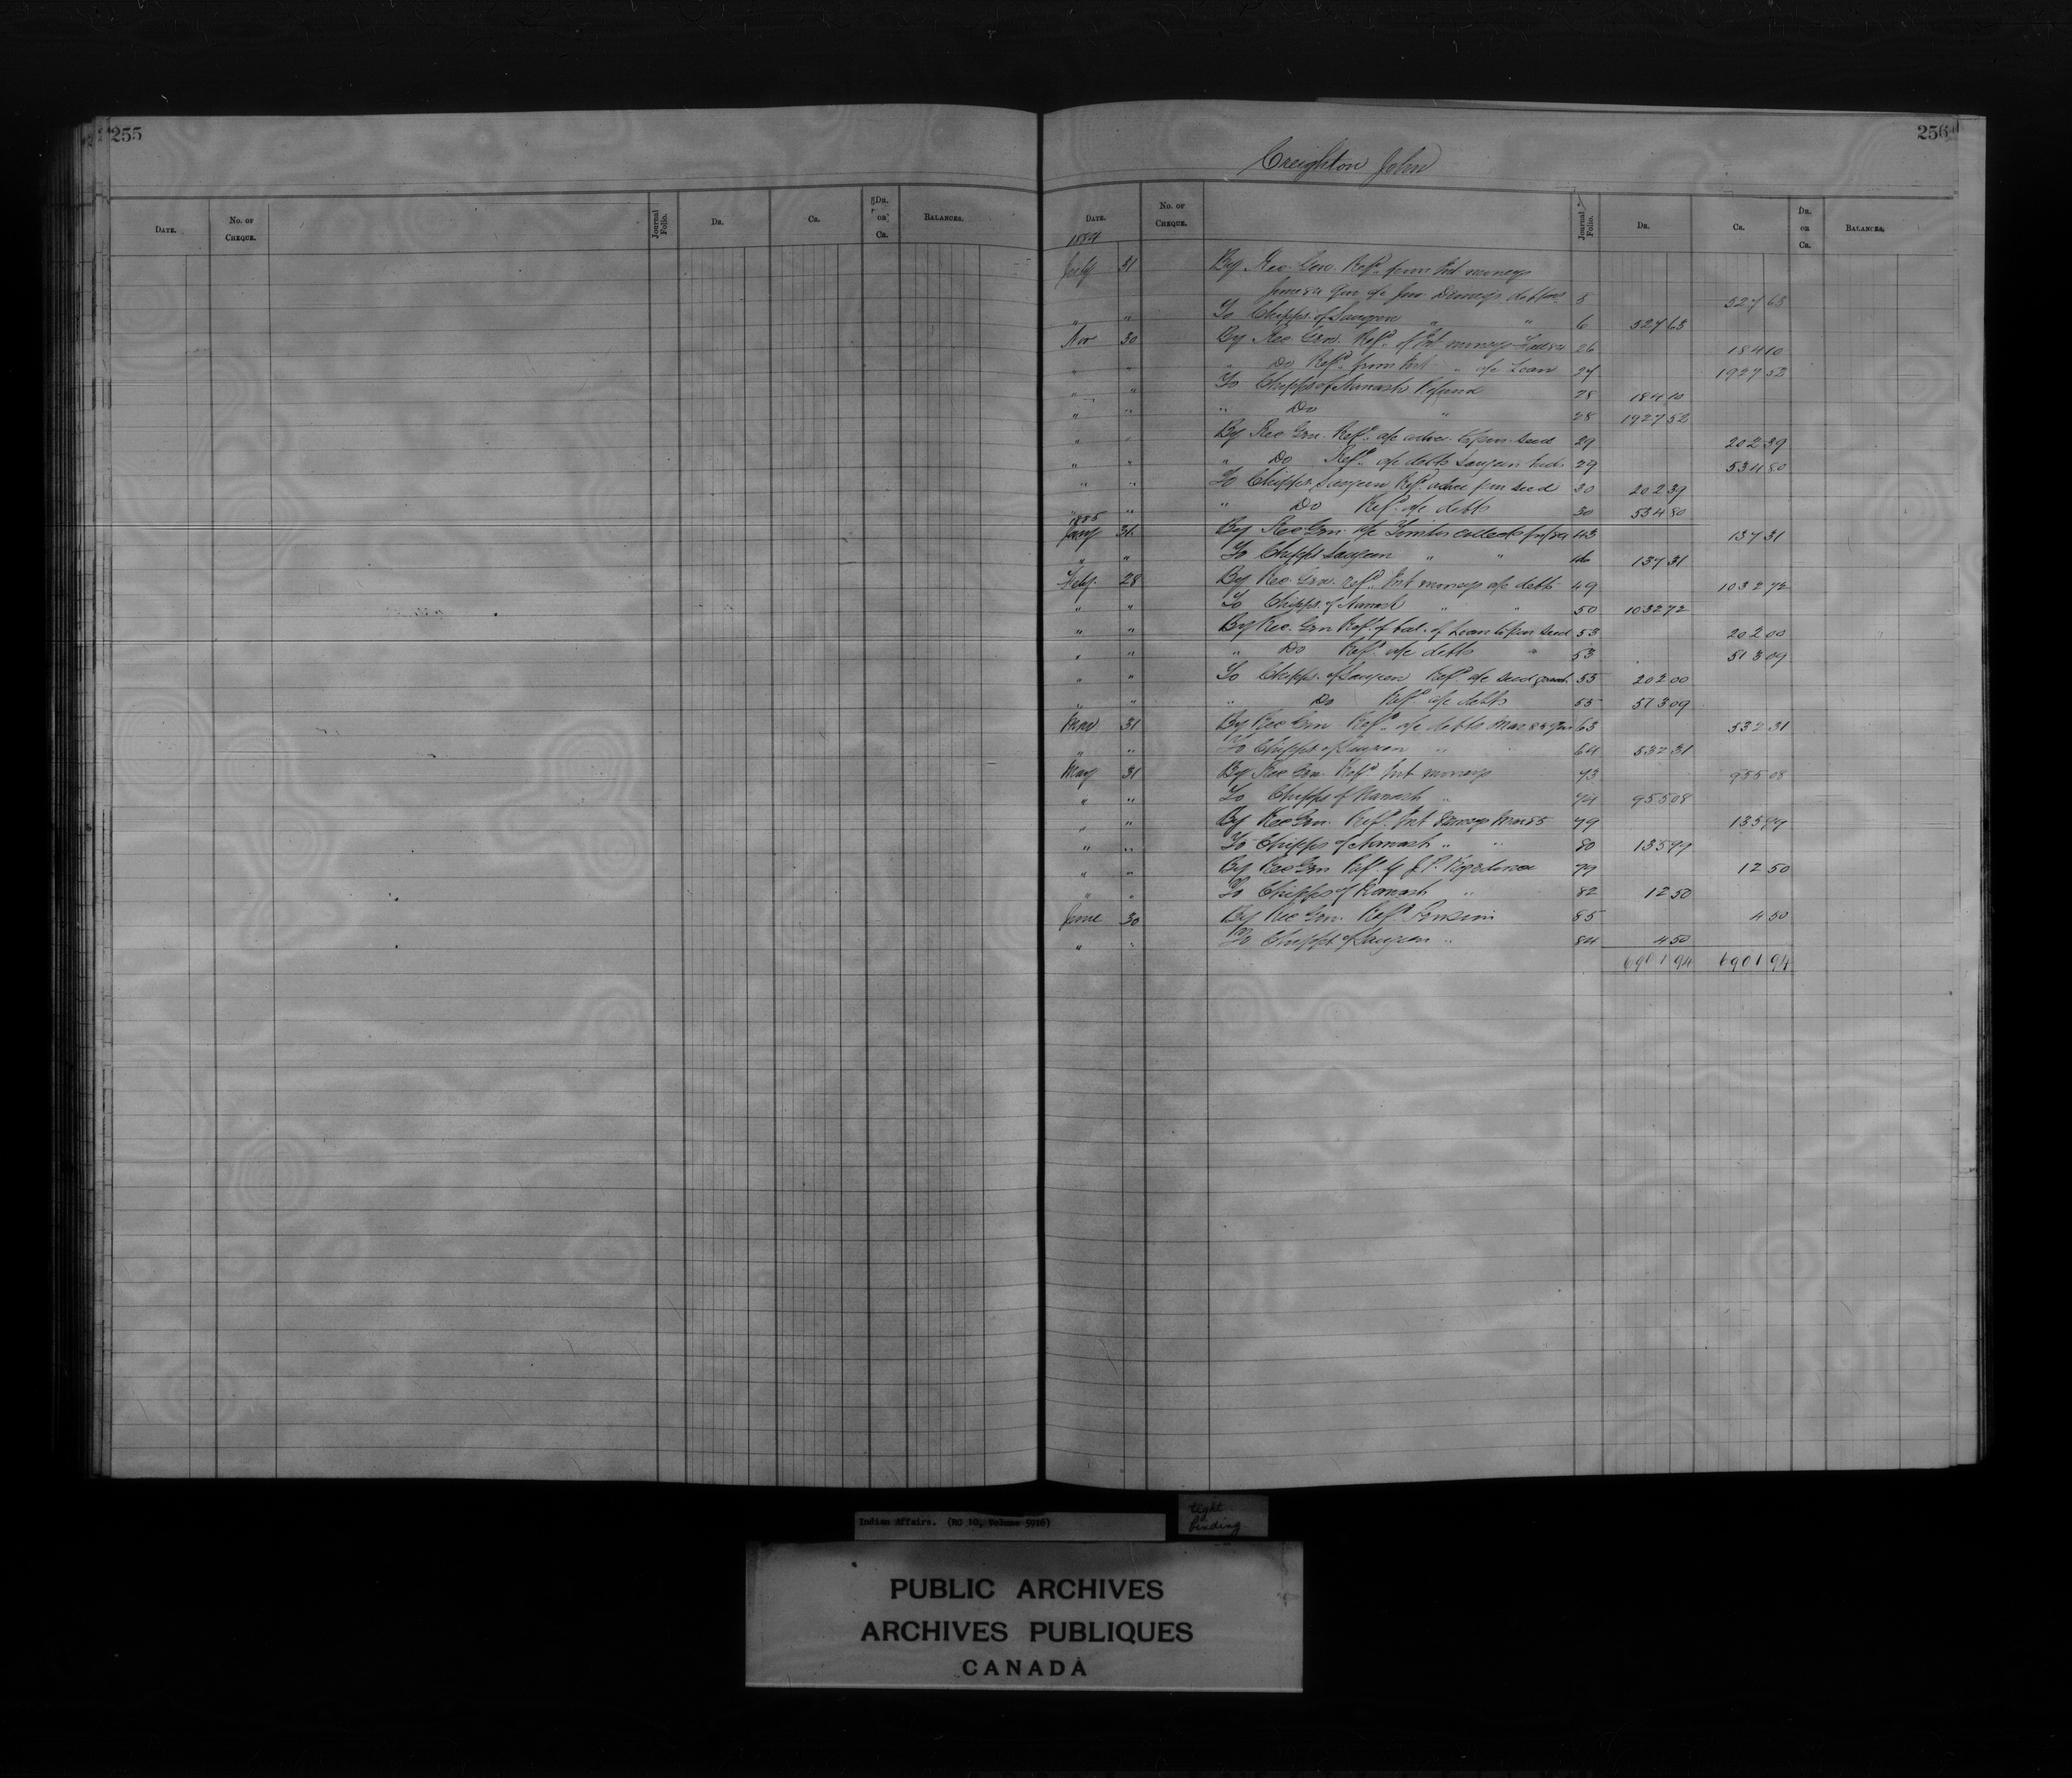 255
DATE. No. of CHEQUE. Journal Folio. DR. CR. DR. or CR. BALANCES.
256
Creighton John
DATE. No. of CHEQUE. Journal Folio. DR. CR. DR. or CR. BALANCES.
1884
July 31 By Rec. Gen. Ref'd. from Int moneys
a/c debts 5 527 63
" " To Chipps. of Saugeen " " 6 527 63
Nov 30 By Rec Gen. Ref'd. of Int moneys 26 184 10
" " " Do Ref'd. from Int " a/c Loan 27 1927 52
" " To Chipps of Nawash Refund 28 184 10
" " " Do " 28 1927 52
" " By Rec Gen. Ref'd. a/c seed 29 202 39
" " " Do Ref'd. a/c debts Saugeen Inds 29 534 80
" " To Chipps. Saugeen Ref'd. seed 30 202 39
" " " Do Ref'd. a/c debts 30 534 80
1885
Jany 31 By Rec Gen. a/c Timber 43 137 31
" " To Chipps Saugeen " " 46 137 31
Feby. 28 By Rec. Gen. ref'd Int moneys a/c debts 49 1032 72
" " To Chipps. of Nawash " " 50 1032 72
" " By Rec. Gen Ref'd. of bal. of Loan seed 53 202 00
" " " Do Ref'd. a/c debts " 53 513 09
" " To Chipps. of Saugeen Ref'd. a/c seed 55 202 00
" " " Do Ref'd. a/c debts 55 513 09
Mar 31 By Rec Gen Ref'd. a/c debts Mar 85 63 532 31
" " To Chipps of Saugeen " 64 532 31
May 31 By Rec Gen. Ref'd. Int moneys 73 955 08
" " To Chipps of Nawash " 74 955 08
" " By Rec Gen. Ref'd. Int Mar 85 79 135 79
" " To Chipps of Nawash " " 80 135 79
" " By Rec Gen Ref. by J. P. 79 12 50
" " To Chipps of Nawash " 82 12 50
June 30 By Rec Gen. Ref'd 85 4 50
" " To Chipps of Saugeen " 84 4 50
6901 94 6901 94
Indian Affairs. (RG 10, Volume 5916)
tight
binding
PUBLIC ARCHIVES
ARCHIVES PUBLIQUES
CANADA